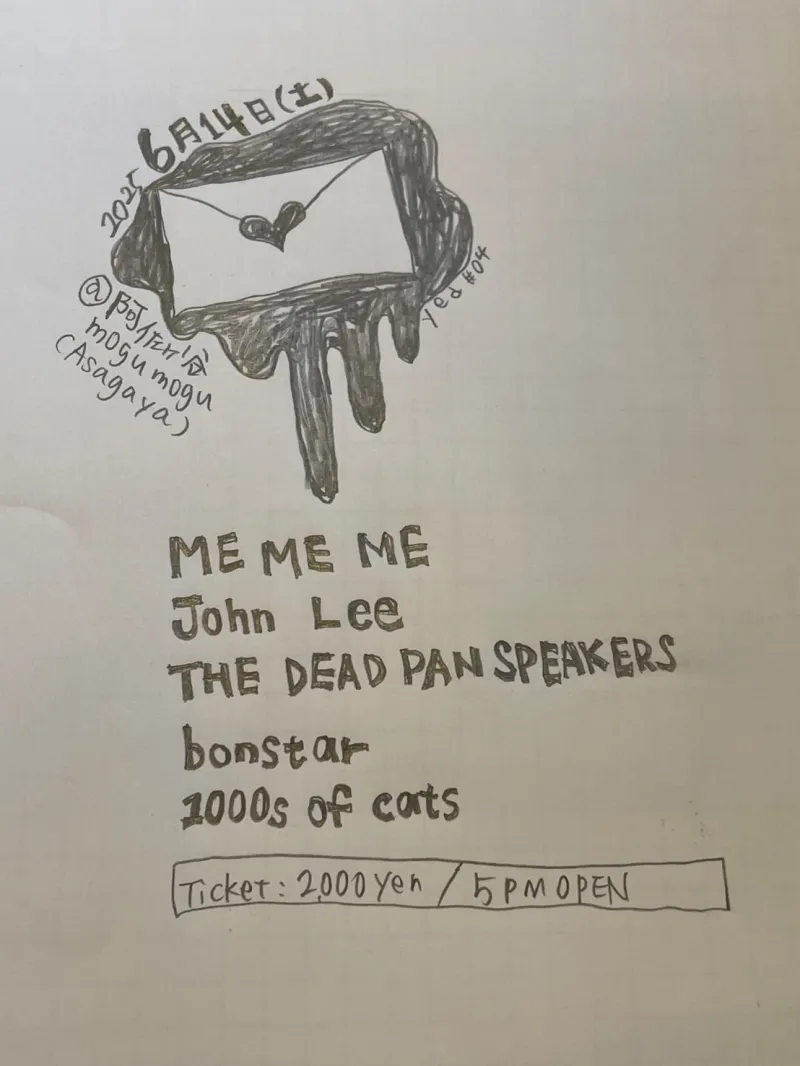 2025 6月14日(土)
@阿佐ヶ谷
mogumogu
(Asagaya)
yed #04
ME ME ME
John Lee
THE DEAD PAN SPEAKERS
bonstar
1000s of cats
Ticket: 2,000 yen / 5 PM OPEN